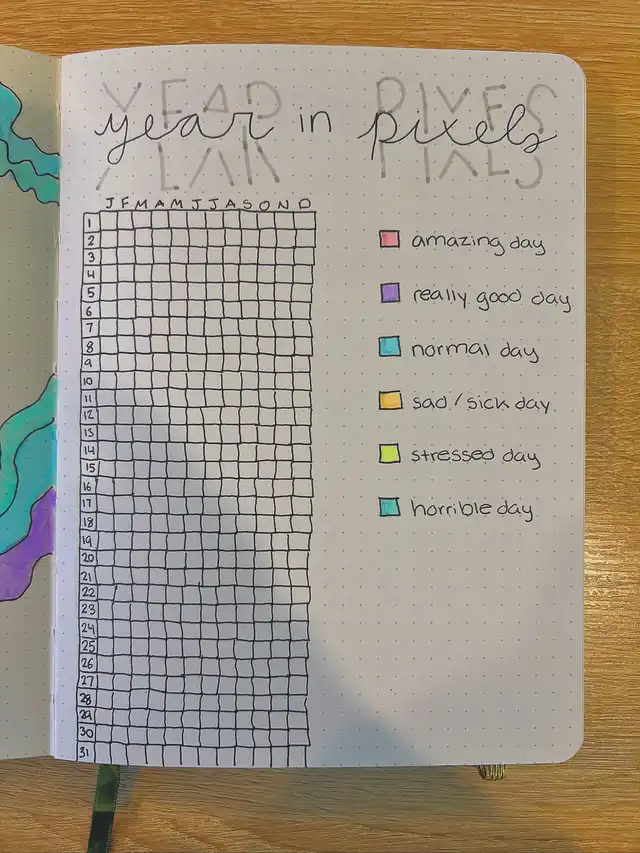 year in pixels
YEAR PIXELS
J F M A M J J A S O N D
1
2
3
4
5
6
7
8
9
10
11
12
13
14
15
16
17
18
19
20
21
22
23
24
25
26
27
28
29
30
31
amazing day
really good day
normal day
sad / sick day.
stressed day
horrible day